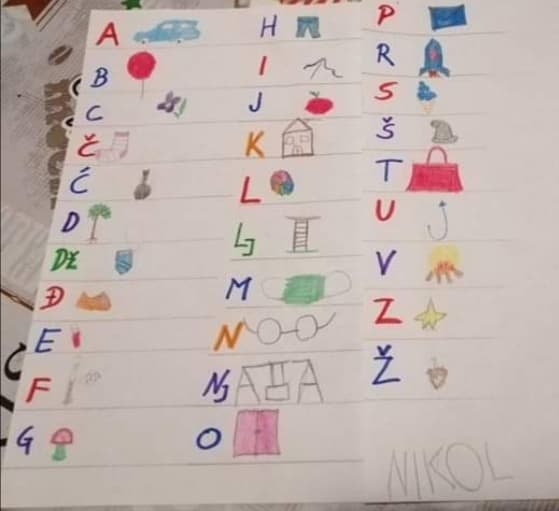 A
B
C
Č
Ć
D
Dž
Đ
E
F
G
H
I
J
K
L
Lj
M
N
Nj
O
P
R
S
Š
T
U
V
Z
Ž
NIKOL